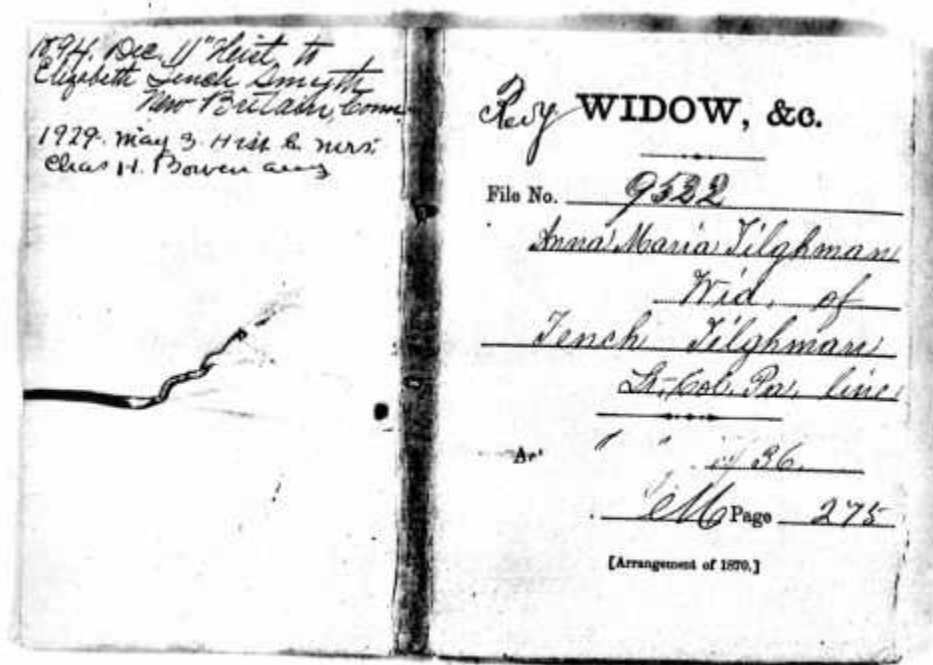 1894. Dec. 11" Hist. to
Elizabeth Tench Smyth
New Britain, Conn.
1929. May 3. Hist to Mrs.
Chas H. Bowen
Rev WIDOW, &c.
File No. 9522
Anna Maria Tilghman
Wid. of
Tench Tilghman
Lt-Col. Pa. line
Ac
36.
Page 275
[Arrangement of 1870.]